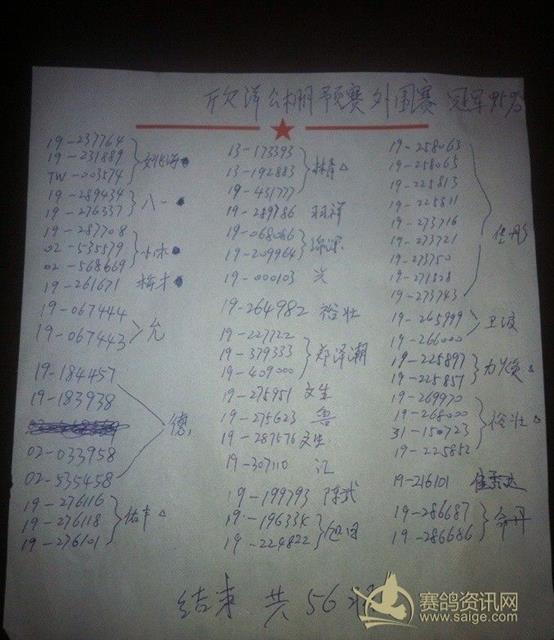 欣洋公棚预赛外围赛 冠军95%
19-237764
19-231889
TW-003574
19-289434
19-276337
八一
19-287708
02-535579
02-568669
小木
19-261671
19-067444
19-067443
允
19-184457
19-183938
02-033958
02-535458
德
19-276116
19-276118
19-276101
佑丰
13-173393
13-192883
19-431777
林青
19-289786
19-068086
19-209964
19-000103
兴
19-264982 裕壮
19-227722
19-379333
19-409000
郑泽潮
19-275951 文生
19-275623 鲁
19-287576 文生
19-307110 汇
19-199793 陈武
19-19633X
19-224822
旭日
19-258063
19-258065
19-225813
19-225811
19-273716
19-273721
19-273750
19-271828
19-273743
19-265999
19-266000
卫波
19-225897
19-225857
19-269970
19-268000
31-150723
19-225852
裕壮
19-216101
19-286687
19-286686
结束 共56羽
赛鸽资讯网
www.saige.com